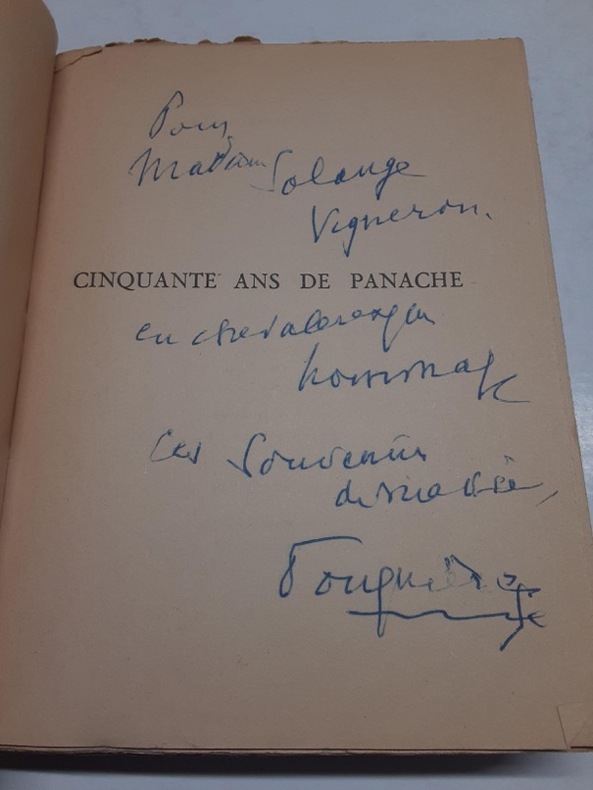 Pour
Madame Solange
Vigneron.
CINQUANTE ANS DE PANACHE
en chevaleresque
hommage
Ces Souvenirs
de ma vie,
Fouquières